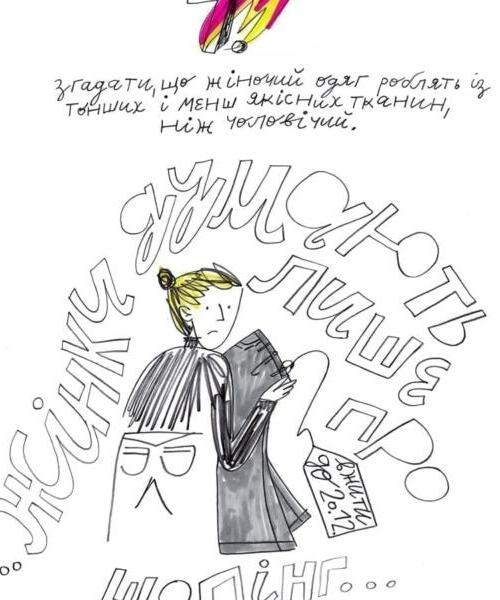 7.
згадати, що жіночий одяг роблять із
тонших і менш якісних тканин,
ніж чоловічий.
жінки думають
лише про
шопінг...
вжити
до 20.12.